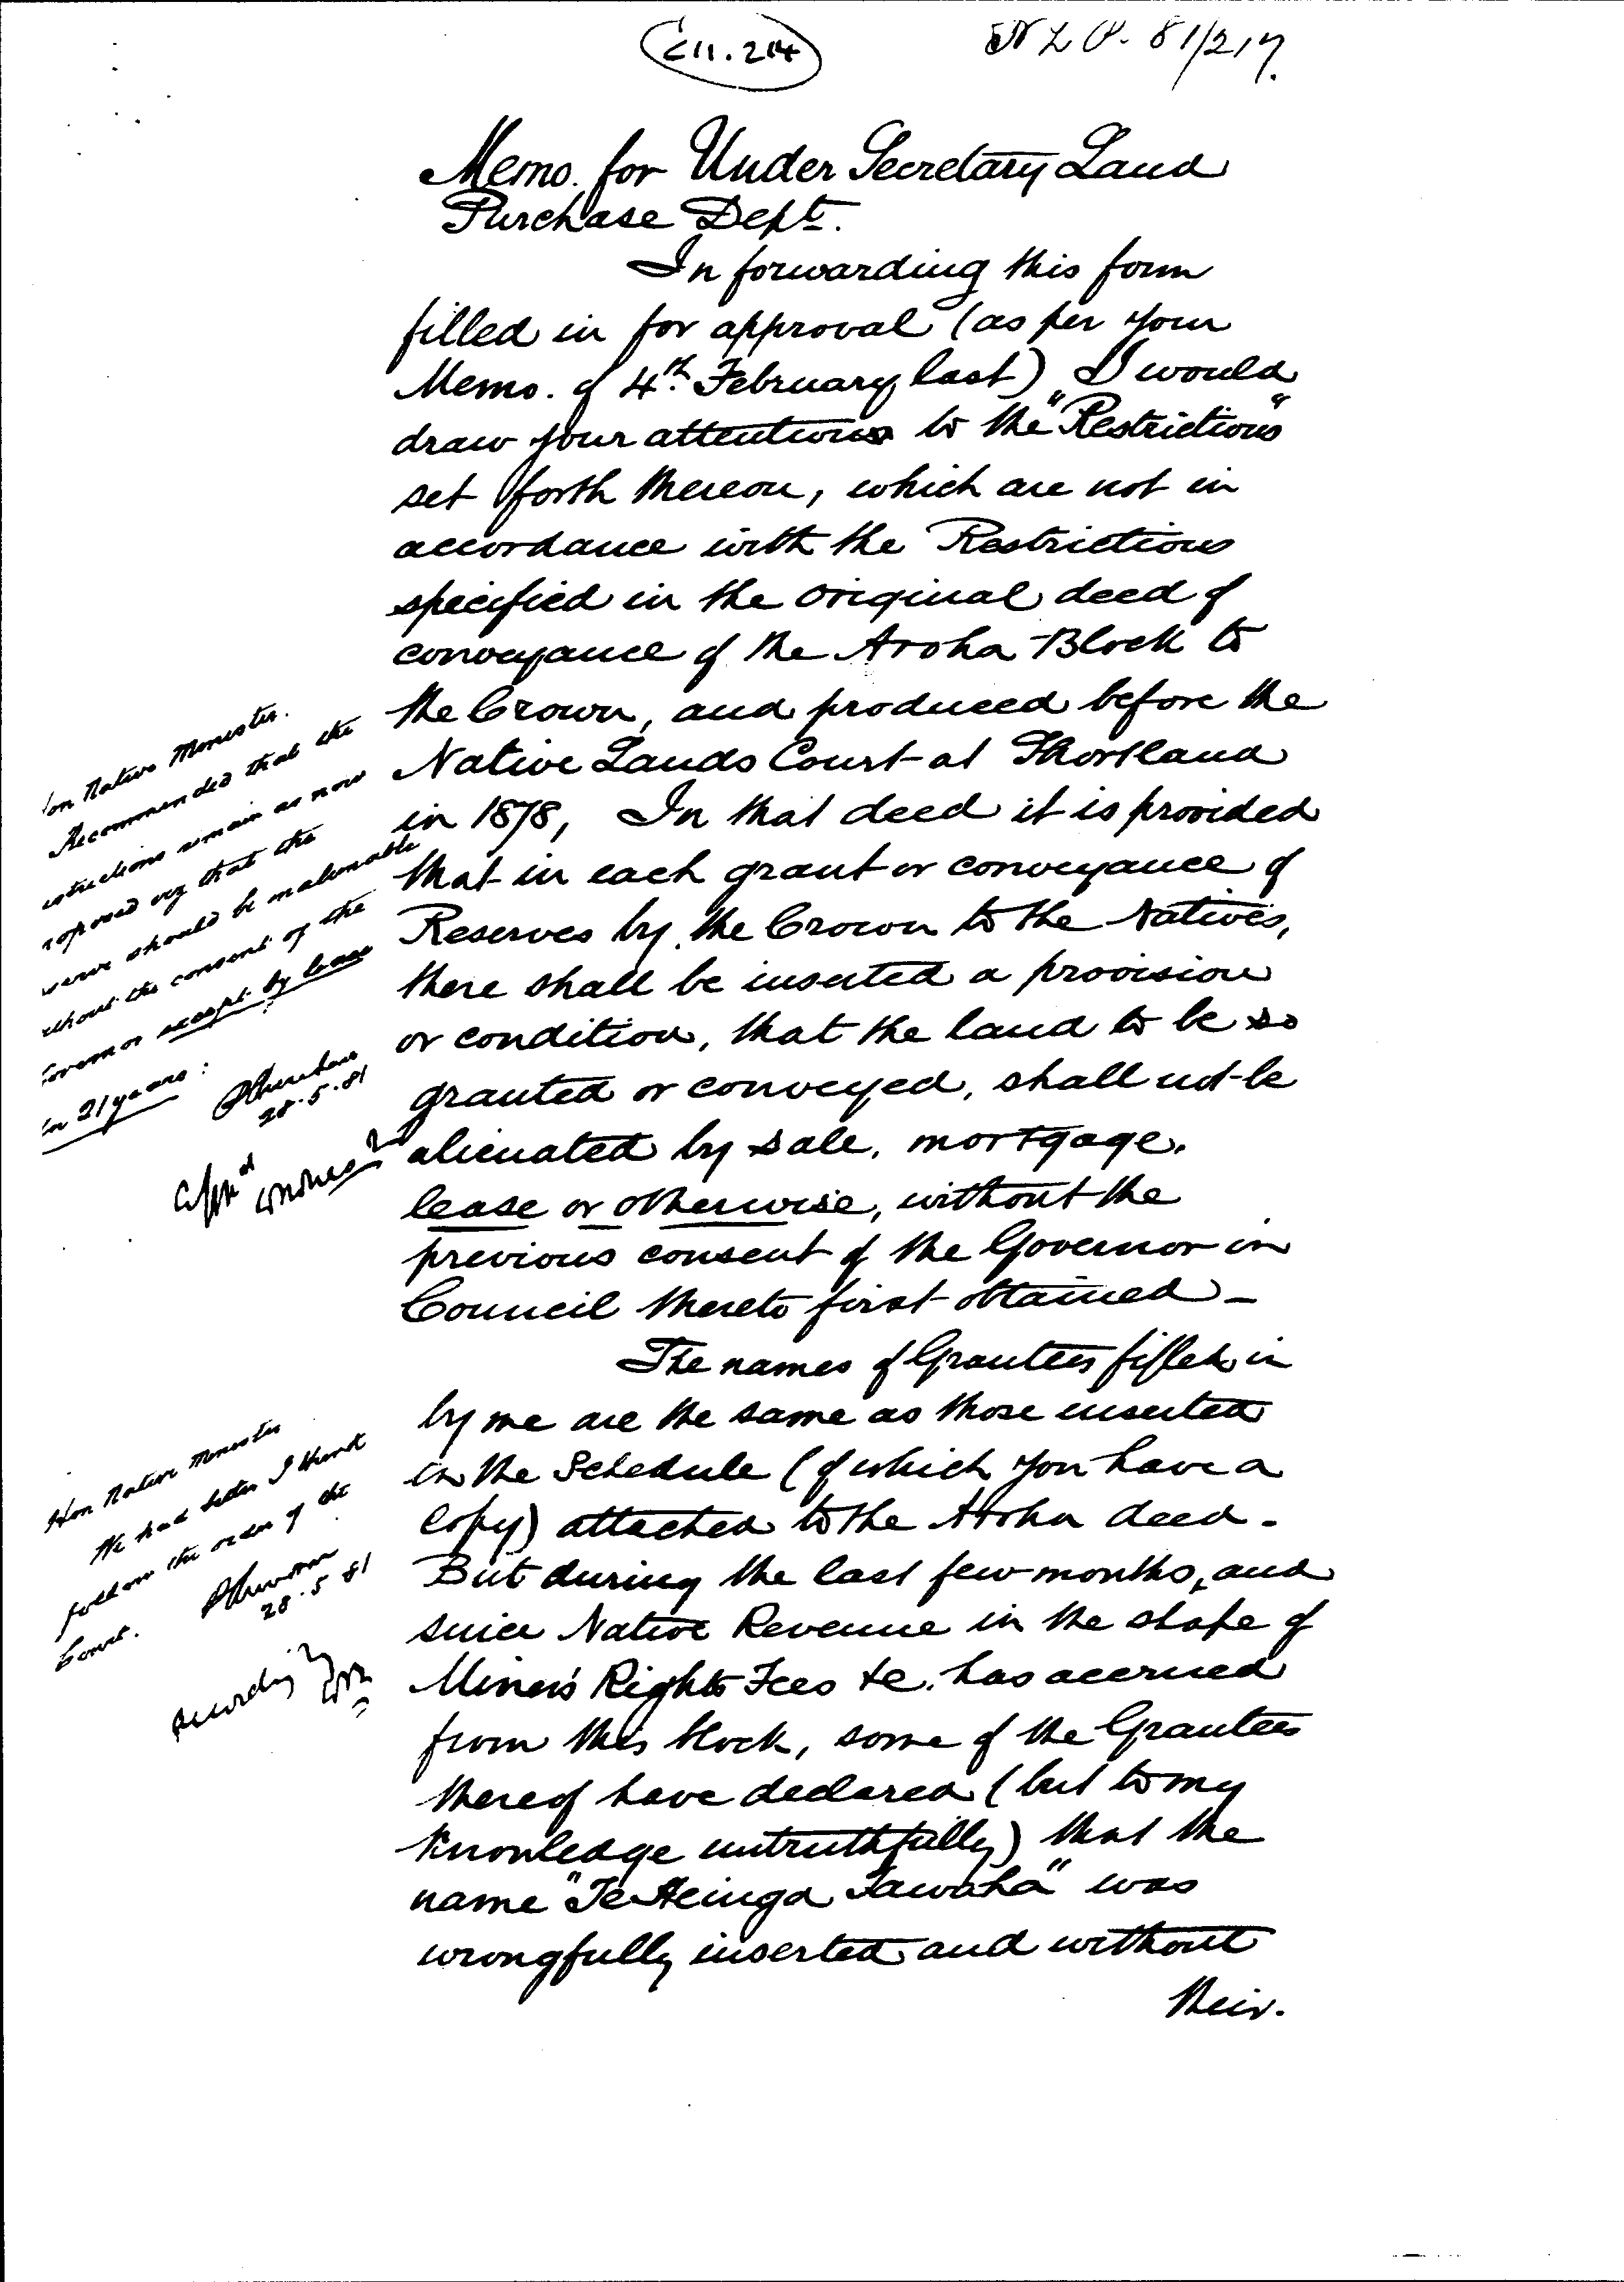 C11.214
N L P. 81/217.
Memo. for Under Secretary Land
Purchase Dept.
In forwarding this form
filled in for approval (as per your
Memo. of 4th February last) I would
draw your attention to the "Restrictions"
set forth thereon, which are not in
accordance with the Restrictions
specified in the original deed of
conveyance of the Aroha Block to
the Crown, and produced before the
Native Lands Court at Shortland
in 1878, In that deed it is provided
that in each grant or conveyance of
Reserves by the Crown to the Natives,
there shall be inserted a provision
or condition, that the land to be so
granted or conveyed, shall not be
alienated by sale, mortgage,
lease or otherwise, without the
previous consent of the Governor in
Council thereto first obtained —
The names of Grantees filled in
by me are the same as those inserted
in the Schedule (of which you have a
Copy) attached to the Aroha deed.
But during the last few months, and
since Native Revenue in the shape of
Miner's Rights Fees &c. has accrued
from this block, some of the Grantees
thereof have declared (but to my
knowledge untruthfully) that the
name "Te Reinga Tawaha" was
wrongfully inserted and without
their.
on Native Minister.
Recommended that the
strictions remain as now
roposed viz that the
serve should be inalienable
ithout the consent of the
Governor except by lease
in 21 years:
28.5.81
Hon Native Minister
We had better I think
follow the order of the
Court.
28.5.81